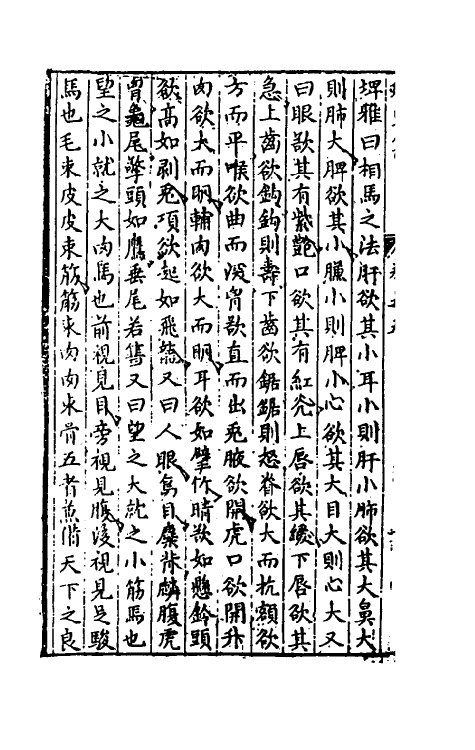 埤雅曰相馬之法肝欲其小耳小則肝小肺欲其大鼻大
則肺大脾欲其小臁小則脾小心欲其大目大則心大又
曰眼欲其有紫艶口欲其有紅光上唇欲其緩下唇欲其
急上齒欲鈎鈎則壽下齒欲鋸鋸則怒脊欲大而抗額欲
方而平喉欲曲而深胷欲直而出兎腋欲開虎口欲開升
肉欲大而明輔肉欲大而明耳欲如擘竹睛欲如懸鈴頭
欲高如剥兎項欲起如飛龍又曰人眼鳥目麋背麟腹虎
胷龜尾擎頭如鷹垂尾若篲又曰望之大就之小筋馬也
望之小就之大肉馬也前視見目旁視見腹後視見足駿
馬也毛束皮皮束筋筋束肉肉束骨五者兼備天下之良